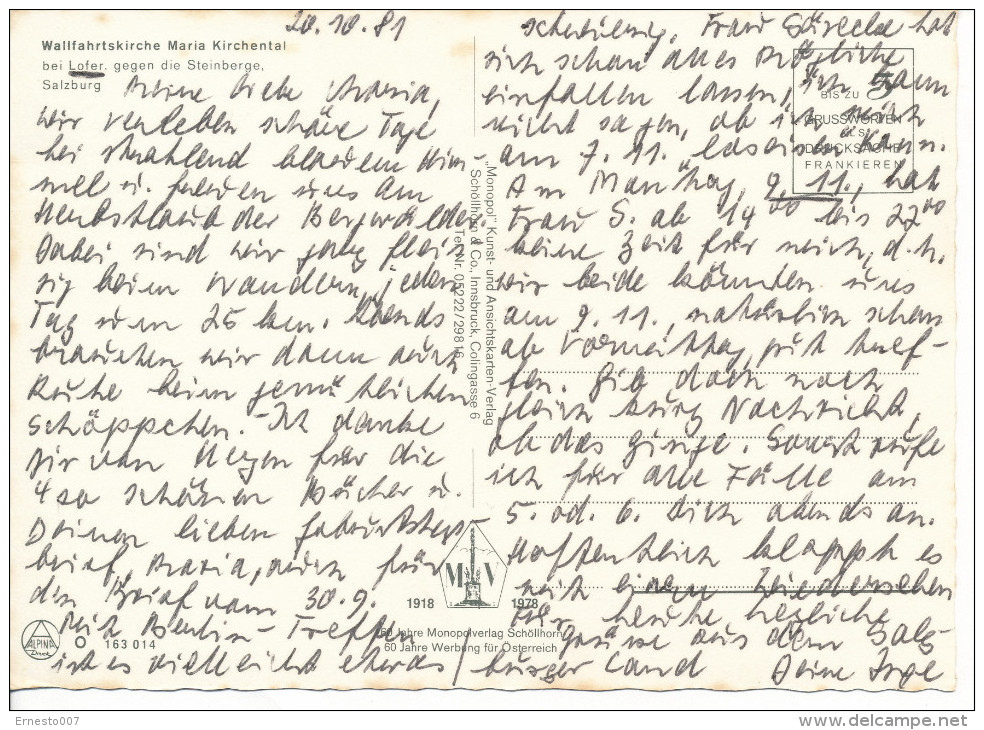 20.10.81
Wallfahrtskirche Maria Kirchental
bei Lofer gegen die Steinberge,
Salzburg
Meine liebe Maria,
wir verleben schöne Tage
bei strahlend blauem Him-
mel u. freuen uns am
Herbstlaub der Bergwälder.
Dabei sind wir ganz fleis-
sig beim Wandern, jeden
Tag um 25 km. Abends
brauchen wir dann auch
Ruhe beim gemütlichen
Schöppchen. – Ich danke
Dir von Herzen für die
4 so schönen Bücher u.
Deinen lieben Geburtstags-
brief, Maria, auch für
den Brief vom 30.9.
Mit Berlin-Treffen
ist es vielleicht etwas /
schwierig. Frau hat
sich schon alles Mögliche
einfallen lassen, ich kann
nicht sagen, ob ich mich
am 7.11. "loseisen" kann.
Am Montag, 9.11., hat
Frau S. ab 14 00 bis 22 00
keine Zeit für mich, d.h.
wir beide könnten uns
am 9.11., natürlich schon
ab Vormittag, gut tref-
fen. Gib doch noch
gleich kurz Nachricht,
ob das ginge. Sonst rufe
ich für alle Fälle am
5. od. 6. Dich abends an.
Hoffentlich klappt es
mit einem Wiedersehen
Für heute herzliche
Grüsse aus dem Salz-
burger Land Deine Inge
BIS ZU 5
GRUSSWORTEN
ALS
DRUCKSACHE
FRANKIEREN
"Monopol" Kunst- und Ansichtskarten-Verlag
Schöllhorn & Co., Innsbruck, Colingasse 6
Tel. Nr. 05222/29816
M V
1918 1978
60 Jahre Monopolverlag Schöllhorn
60 Jahre Werbung für Österreich
ALPINA
Druck
O 163 014
Ernesto007
www.delcampe.net